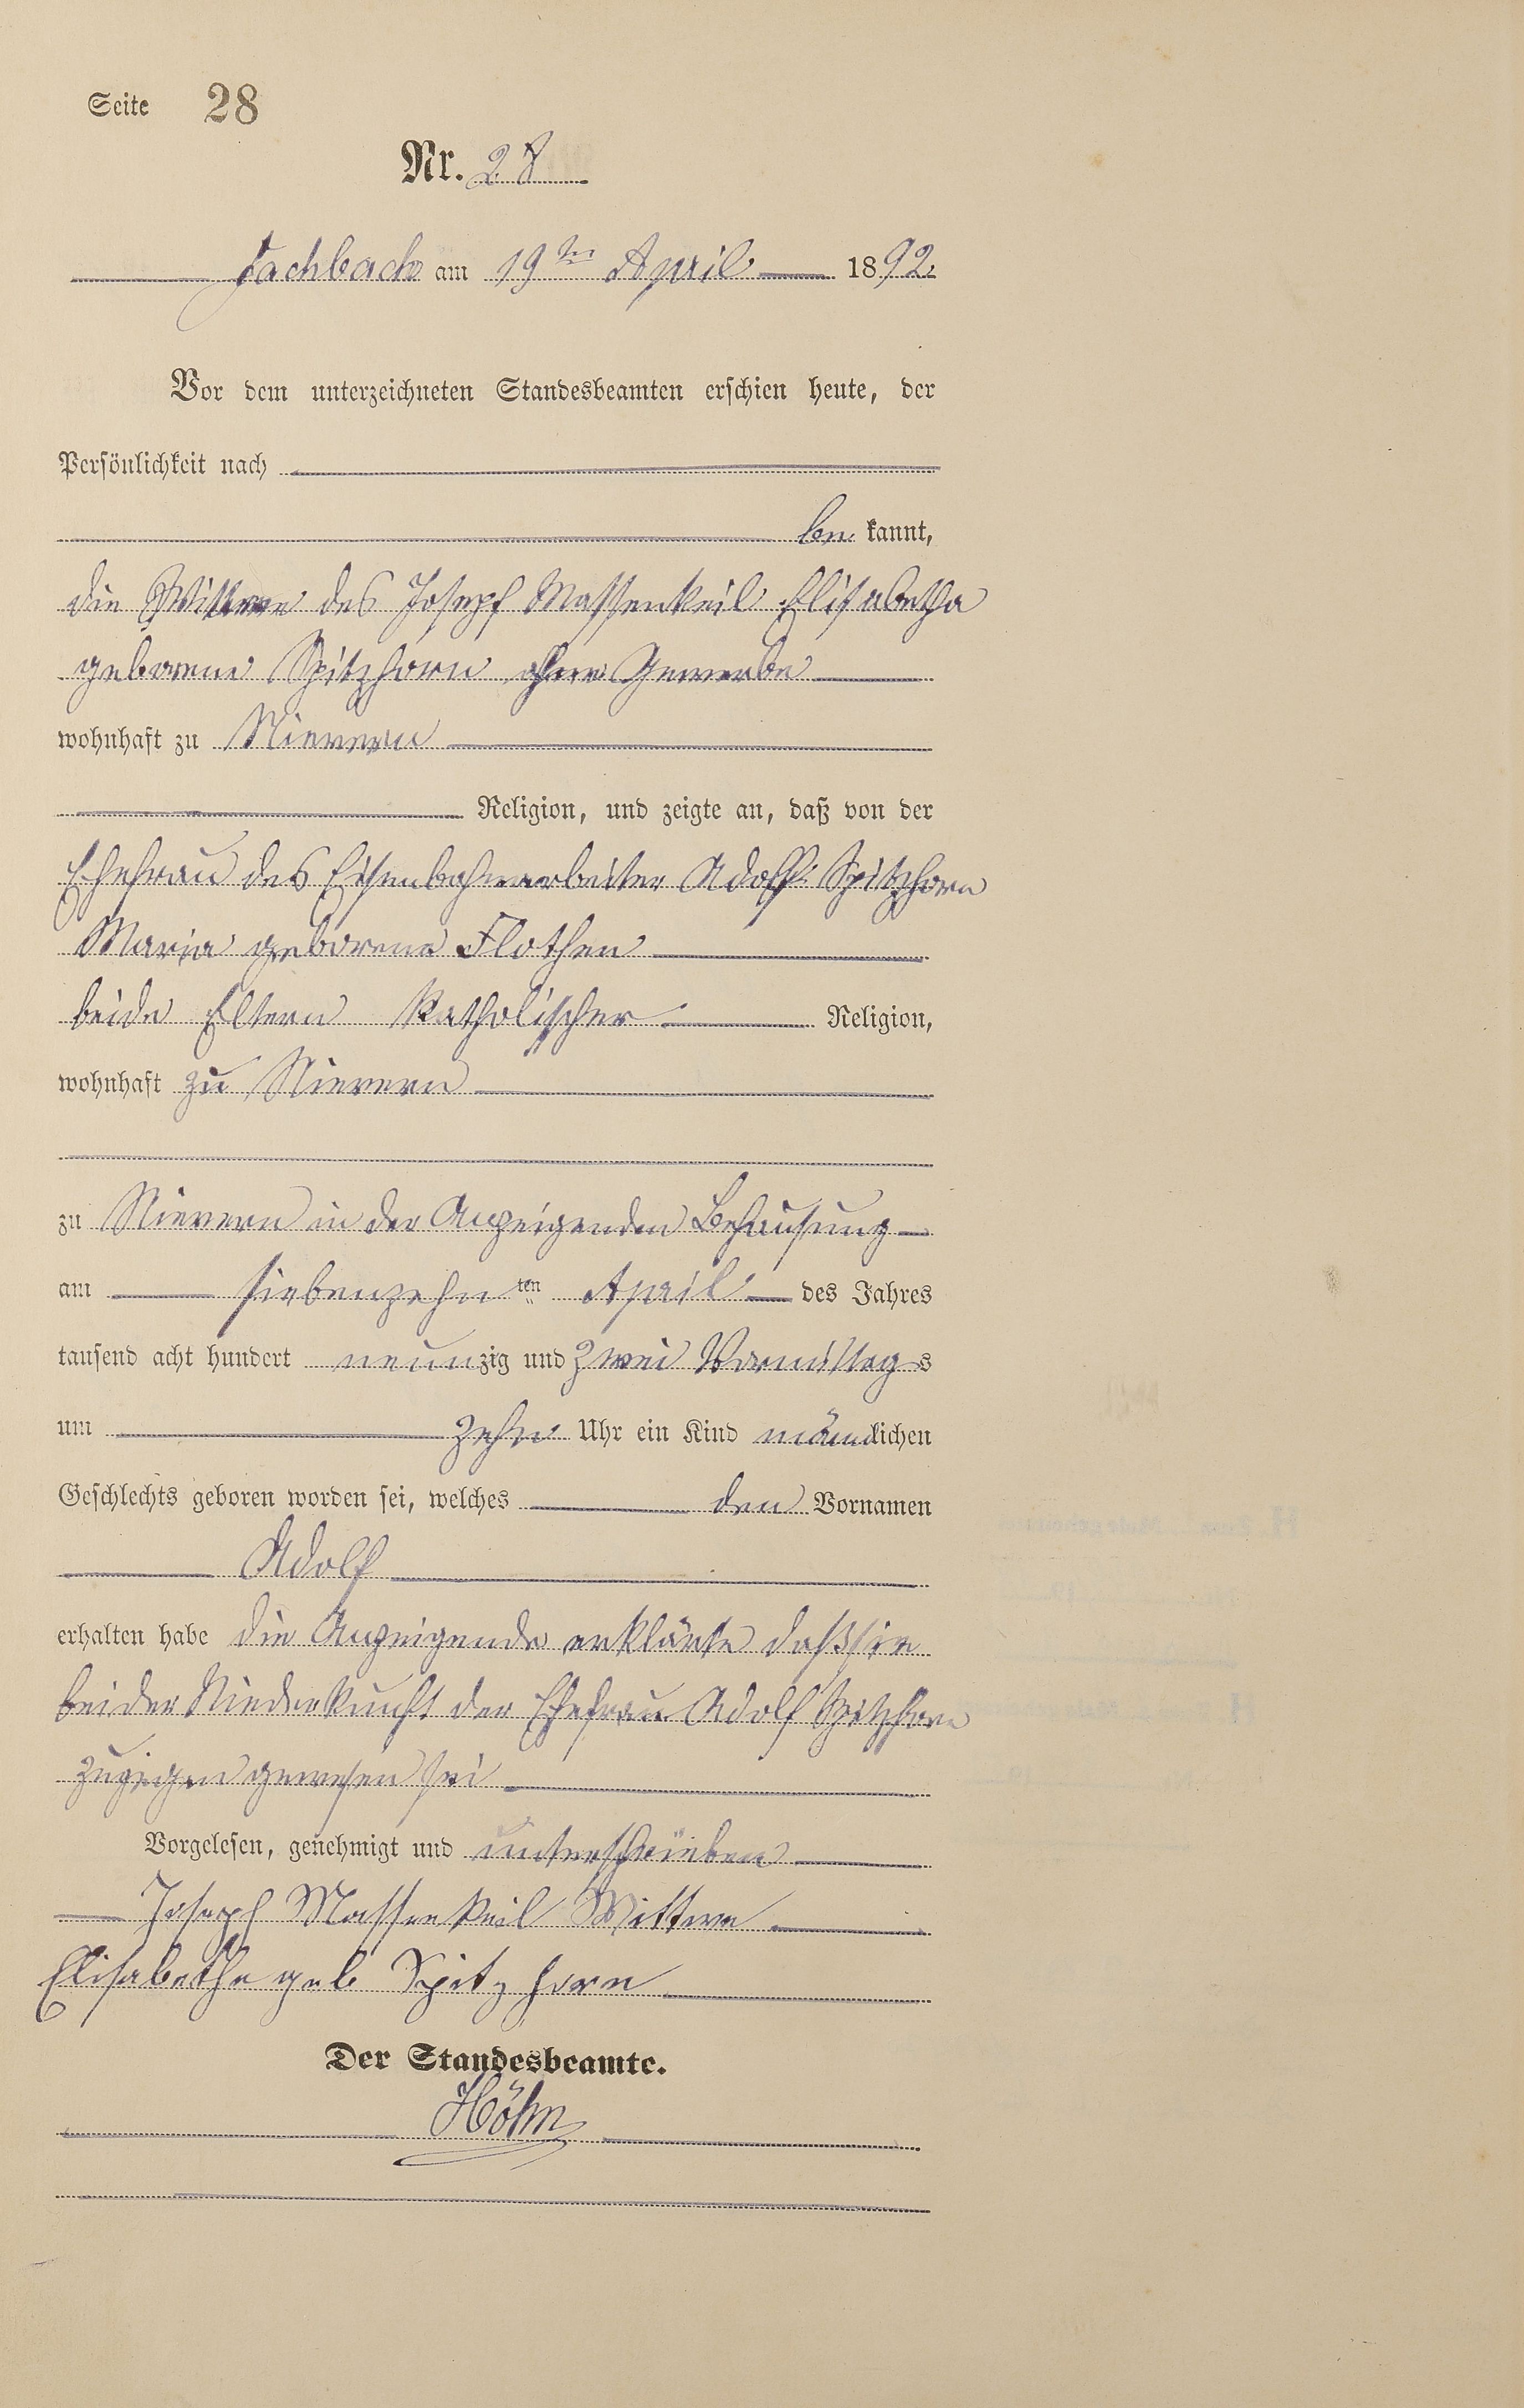 Seite 28
Nr. 28
Fachbach am 19ten April 1892.
Vor dem unterzeichneten Standesbeamten erschien heute, der
Persönlichkeit nach
be kannt,
die Wittwe des Joseph Massenkeil Elisabetha
geborene Spitzhorn ohne Gewerbe
wohnhaft zu Nievern
Religion, und zeigte an, daß von der
Ehefrau des Eisenbahnarbeiter Adolf Spitzhorn
Maria geborene Flothen
beide Eltern katholischer Religion,
wohnhaft zu Nievern
zu Nievern in der Anzeigenden Behausung
am siebenzehnten April des Jahres
tausend acht hundert neunzig und zwei Vormittags
um zehn Uhr ein Kind männlichen
Geschlechts geboren worden sei, welches den Vornamen
Adolf
erhalten habe die Anzeigende erklärte daß sie
bei der Niederkunft der Ehefrau Adolf Spitzhorn
zugegen gewesen sei
Vorgelesen, genehmigt und unterschrieben
Joseph Massenkeil Wittwe
Elisabetha geb Spitzhorn
Der Standesbeamte.
Höhn